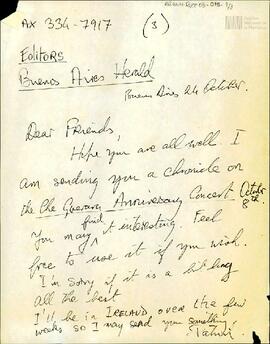 AX 334-7917
(3)
Editors
Buenos Aires Herald
Buenos Aires 24 October.
Dear Friends,
Hope you are all well I
am sending you a chronicle on
the Che Guevara Anniversary Concert October 8th.
You may find it interesting. Feel
free to use it if you wish.
I'm sorry if it is a bit long
all the best
I'll be in IRELAND, over the few
weeks so I may send you something